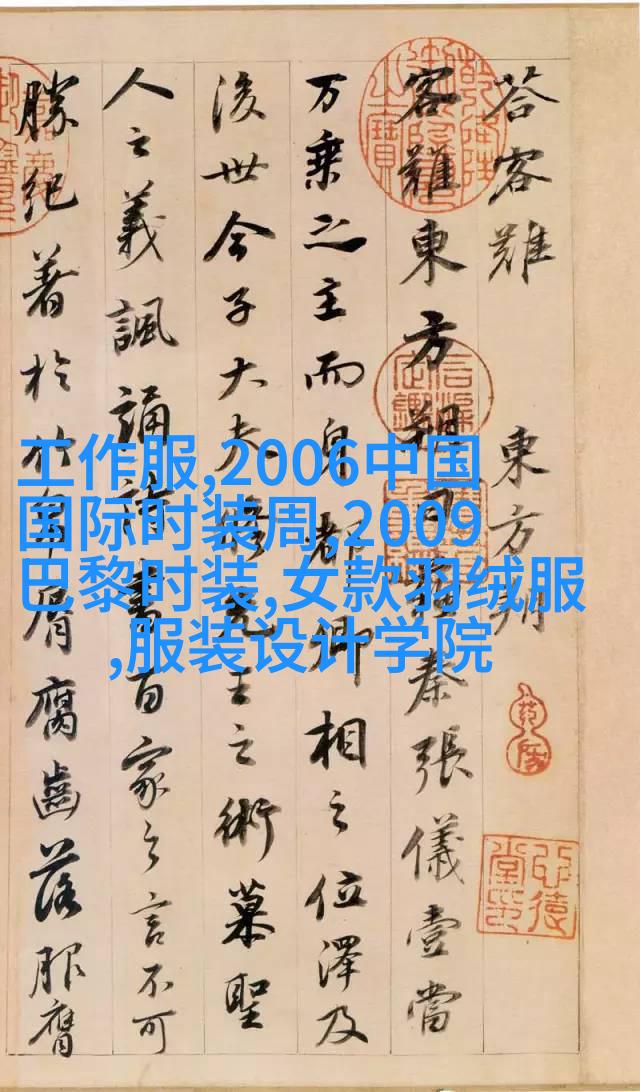 荅客難 東方朔
客難東方朔曰蘇秦張儀壹當
万乘之主而身都卿相之位澤及
後世今子大夫脩先王之術慕聖
人之義諷誦詩書百家之言不可
勝紀著於竹帛脣腐齒落服膺
工作服,2006中国
国际时装周,2009
巴黎时装,女款羽绒服
,服装设计学院